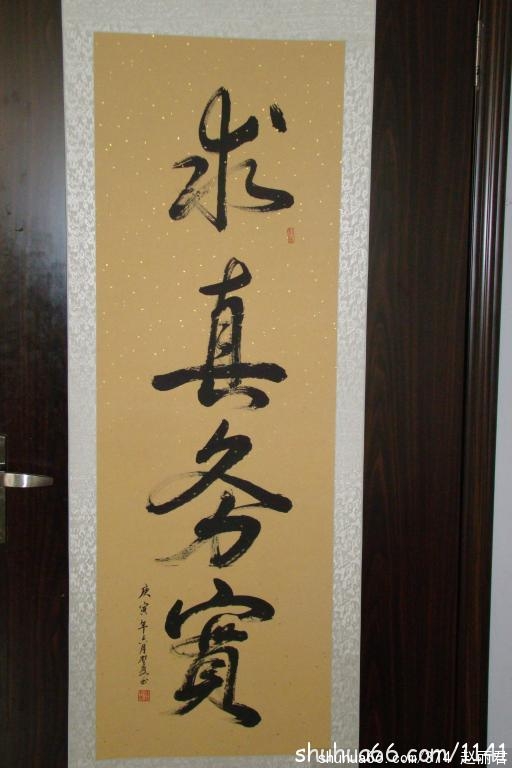 求真务實
庚寅年六月
书
shuhua66.com/1141
shuhua66.com/374 赵丽君